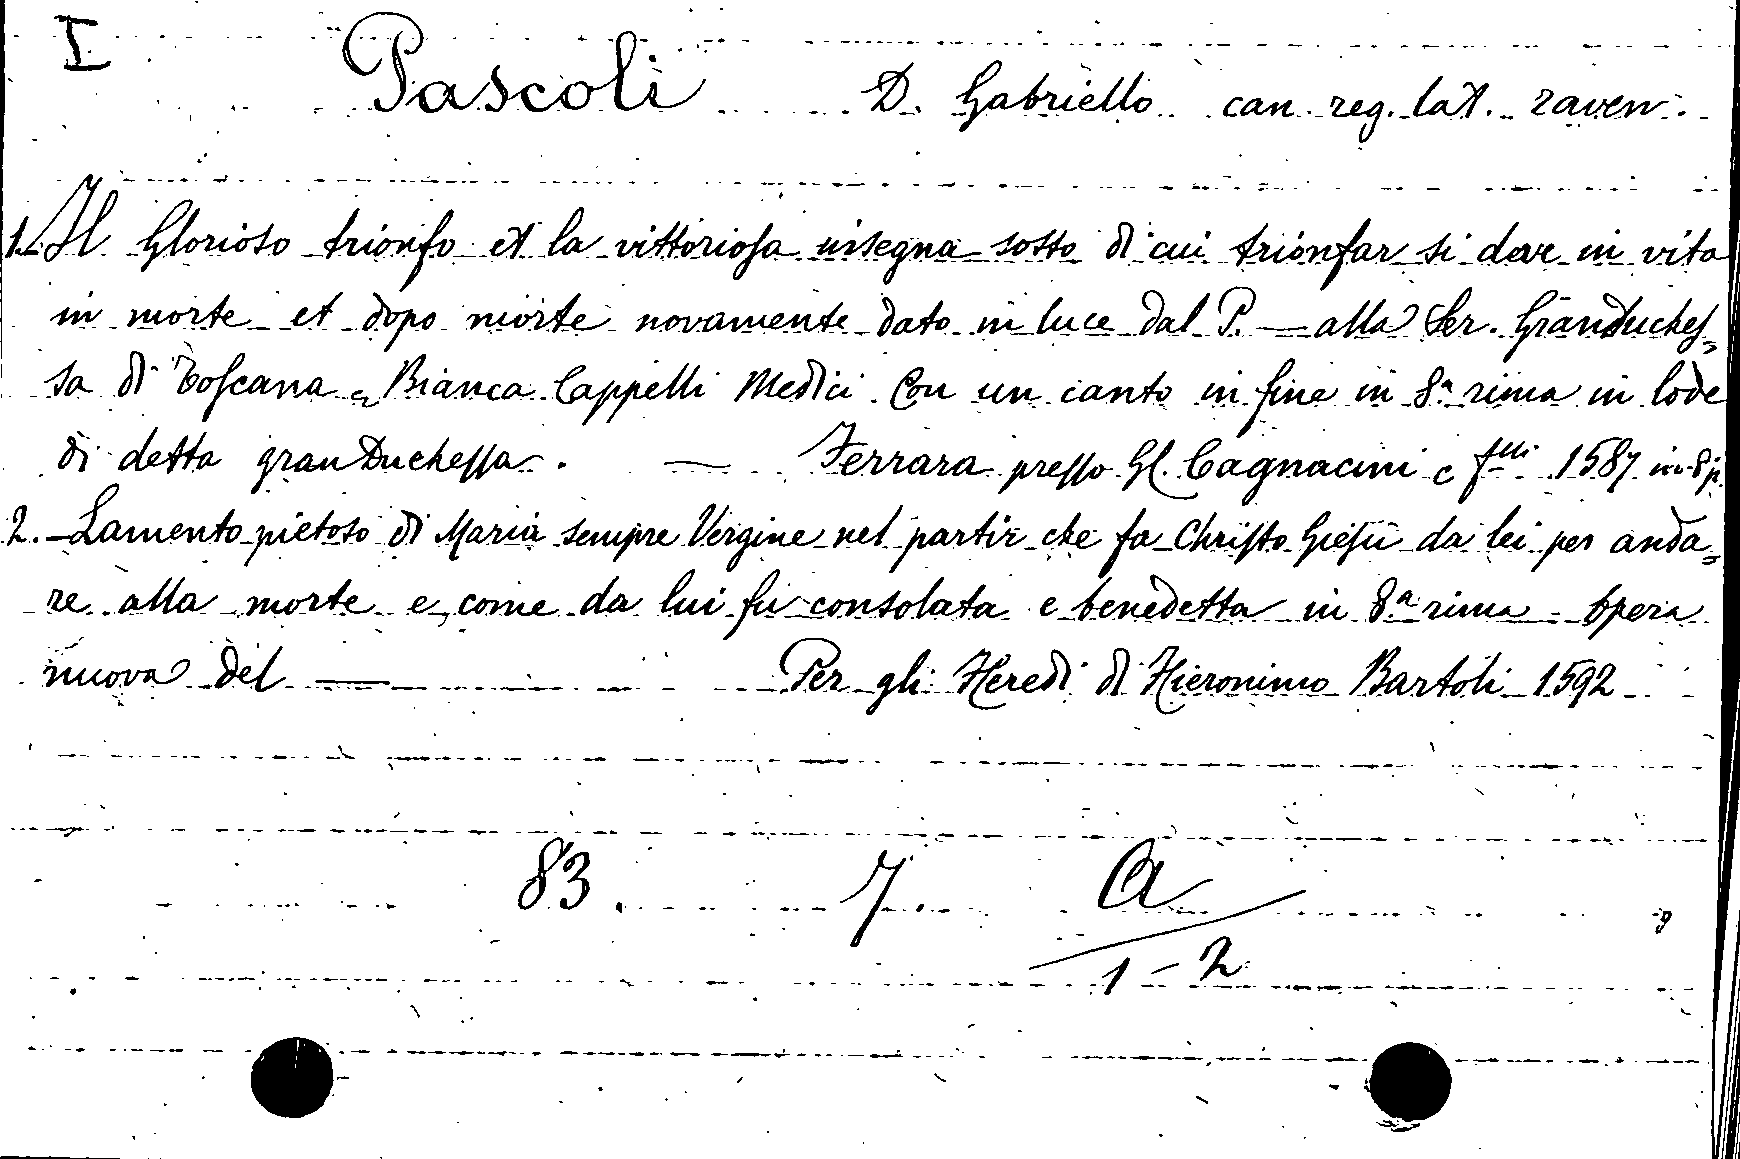 I
Pascoli D. Gabriello can. reg. lat. raven.
1. Il Glorioso trionfo et la vittoriosa insegna sotto di cui trionfar si deve in vita
in morte et dopo morte novamente dato in luce dal P. — alla Ser. Granduches=
sa di Toscana Bianca Cappelli Medici. Con un canto in fine in 8ª rima in lode
di detta gran Duchessa. — Ferrara presso Gl. Cagnacini e flli 1587 in-8 p.
2. – Lamento pietoso di Maria sempre Vergine nel partir che fa Christo Giesù da lei per anda=
re alla morte e come da lui fu consolata e benedetta in 8ª rima. Opera
nuova del — Per gli Heredi di Hieronimo Bartoli 1592
83. 7. A
1–2